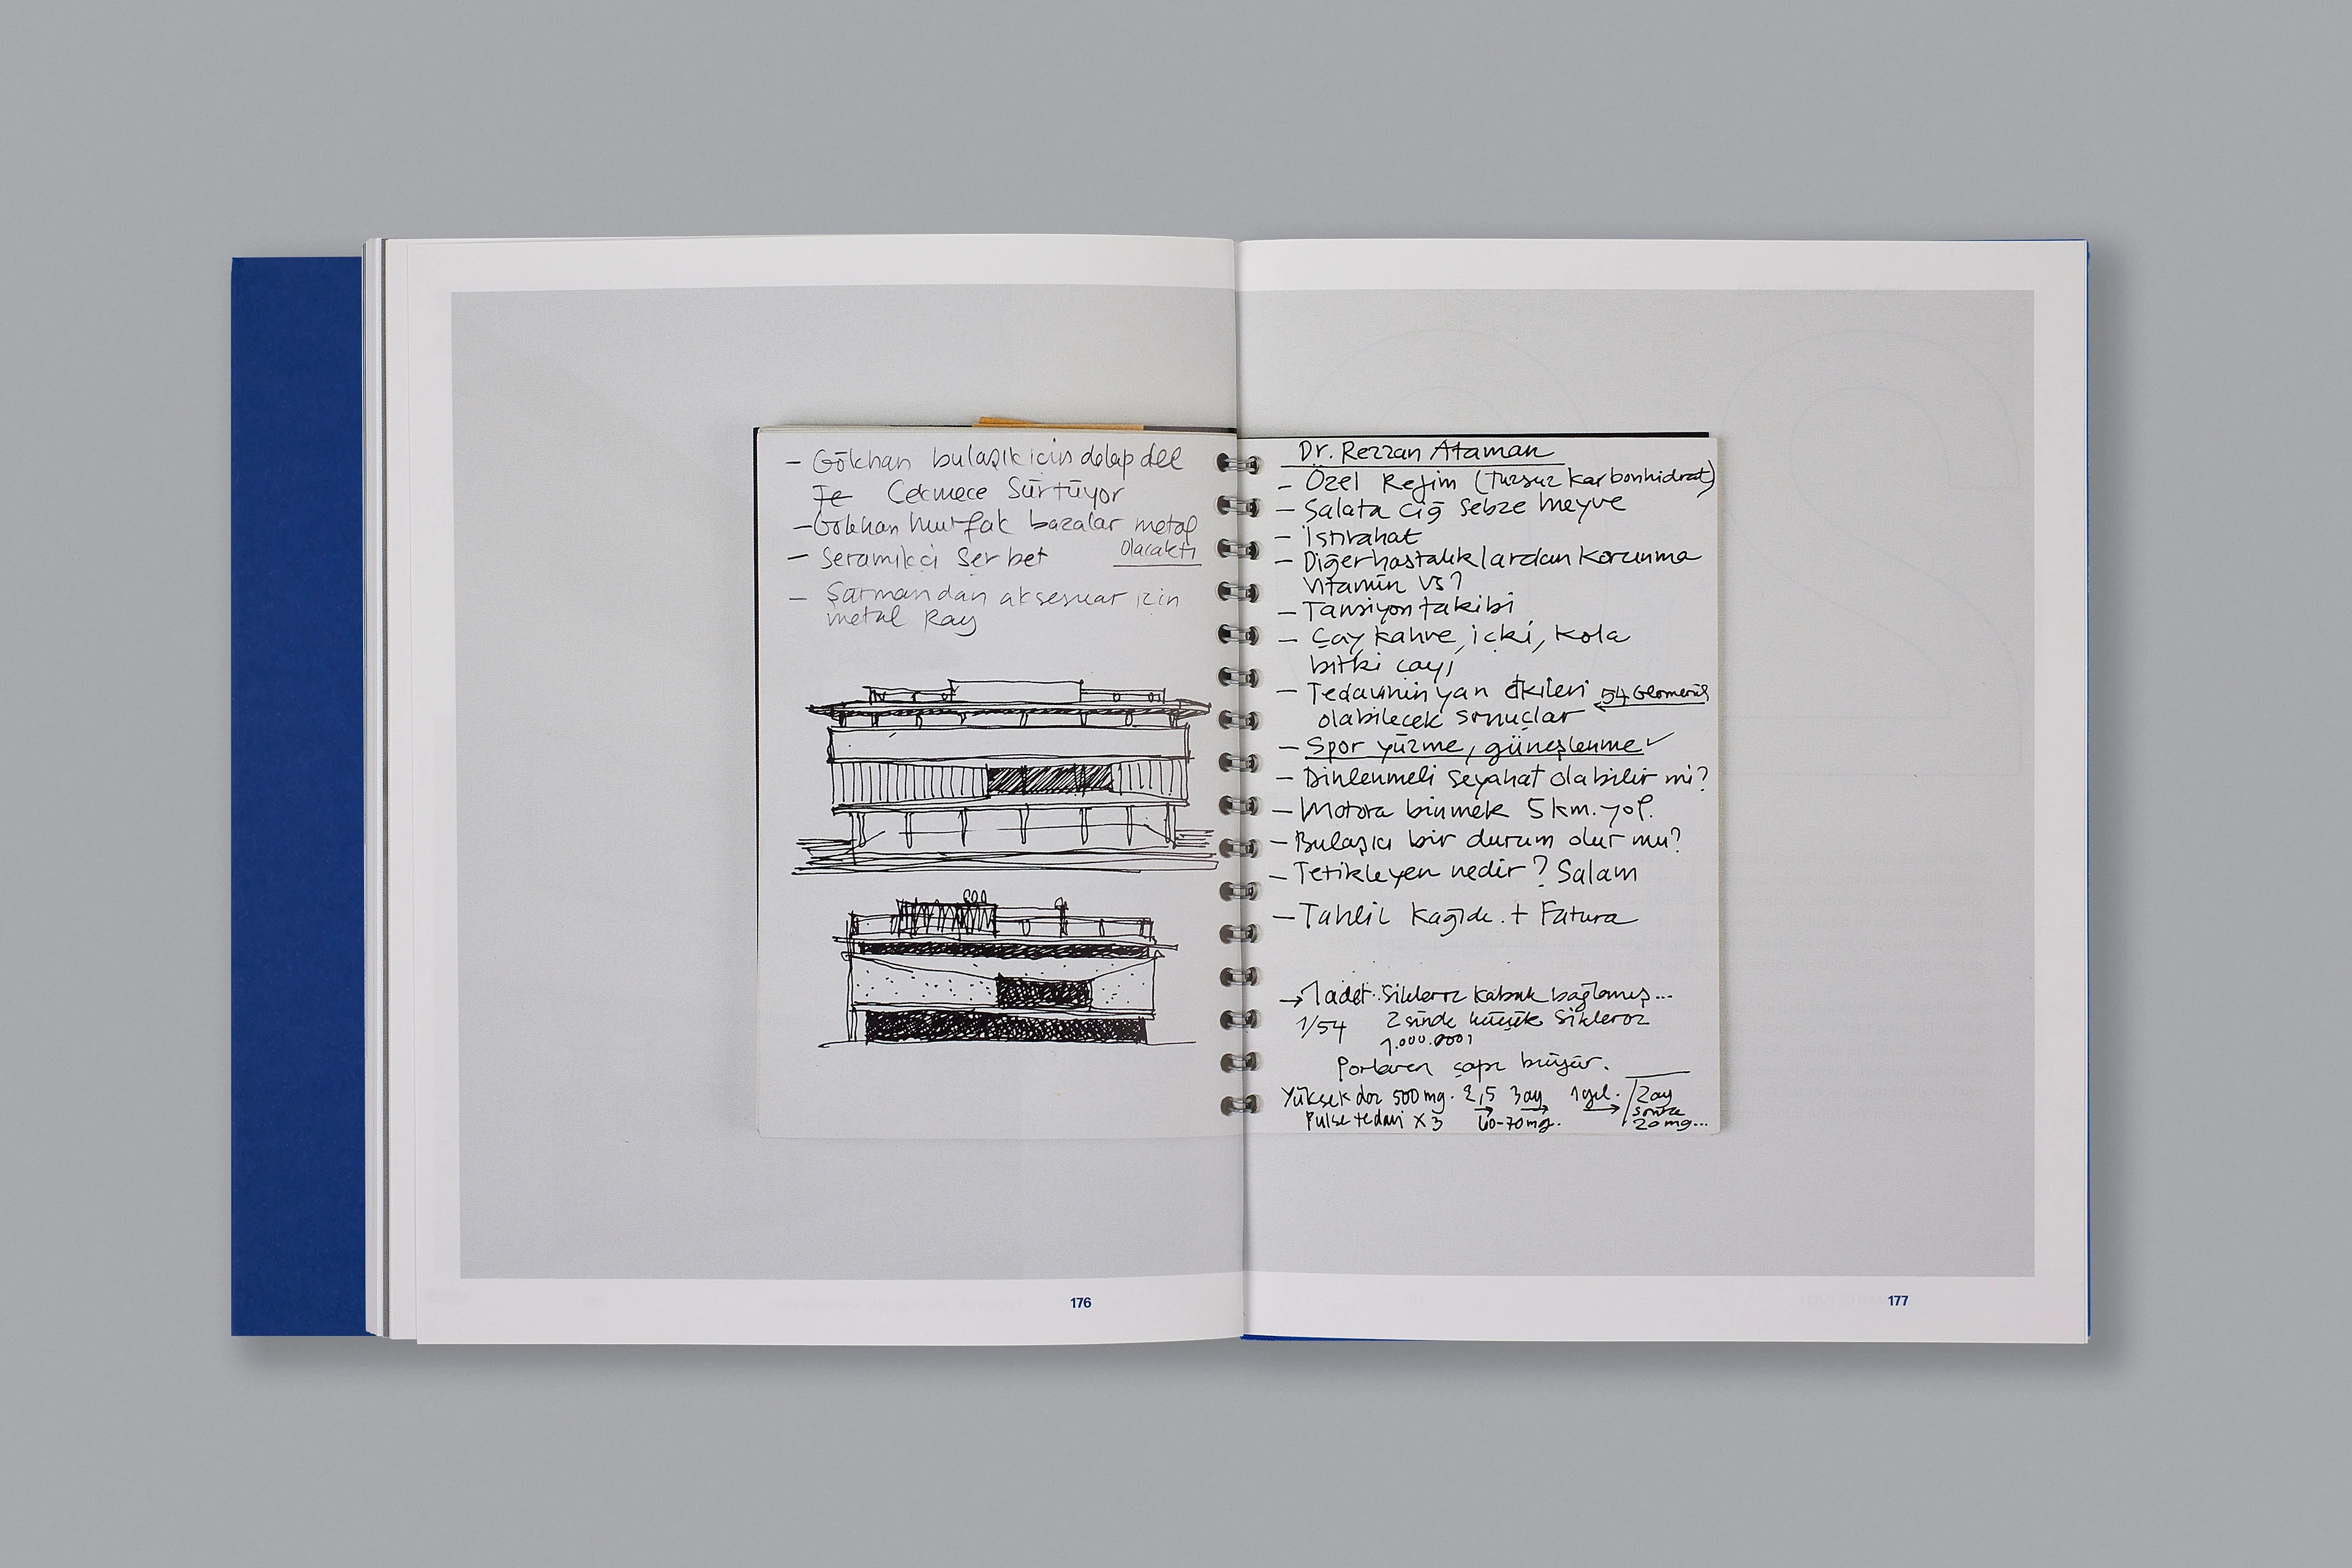 – Gökhan bulaşık için dolap del
Te Cekmece Sürtüyor
– Gökhan mutfak bazalar metal
olacaktı
– Seramikçi Serbet
– Şarmandan aksesuar için
metal Ray
176
Dr. Rezzan Ataman
– Özel Rejim (Tuzsuz karbonhidrat)
– Salata çiğ sebze meyve
– İstirahat
– Diğer hastalıklardan korunma
Vitamin vs?
– Tansiyon takibi
– Çay, kahve, içki, kola
bitki çayı
– Tedavinin yan etkileri 54 Glomerül
olabilecek sonuçlar
– Spor yüzme, güneşlenme ✓
– Dinlenmeli seyahat olabilir mi?
– Motora binmek 5 km. yol.
– Bulaşıcı bir durum olur mu?
– Tetikleyen nedir? Salam
– Tahlil kağıdı. + Fatura
→ 1 adet Skleroz kabuk bağlamış...
1/54 2 sinde küçük Skleroz
1.000.000
çapı büyür.
Yüksek doz 500 mg. 2,5 3 ay 1 yıl. / 2 ay
Pulse tedavi x 3 60-70 mg. sonra
20 mg...
177